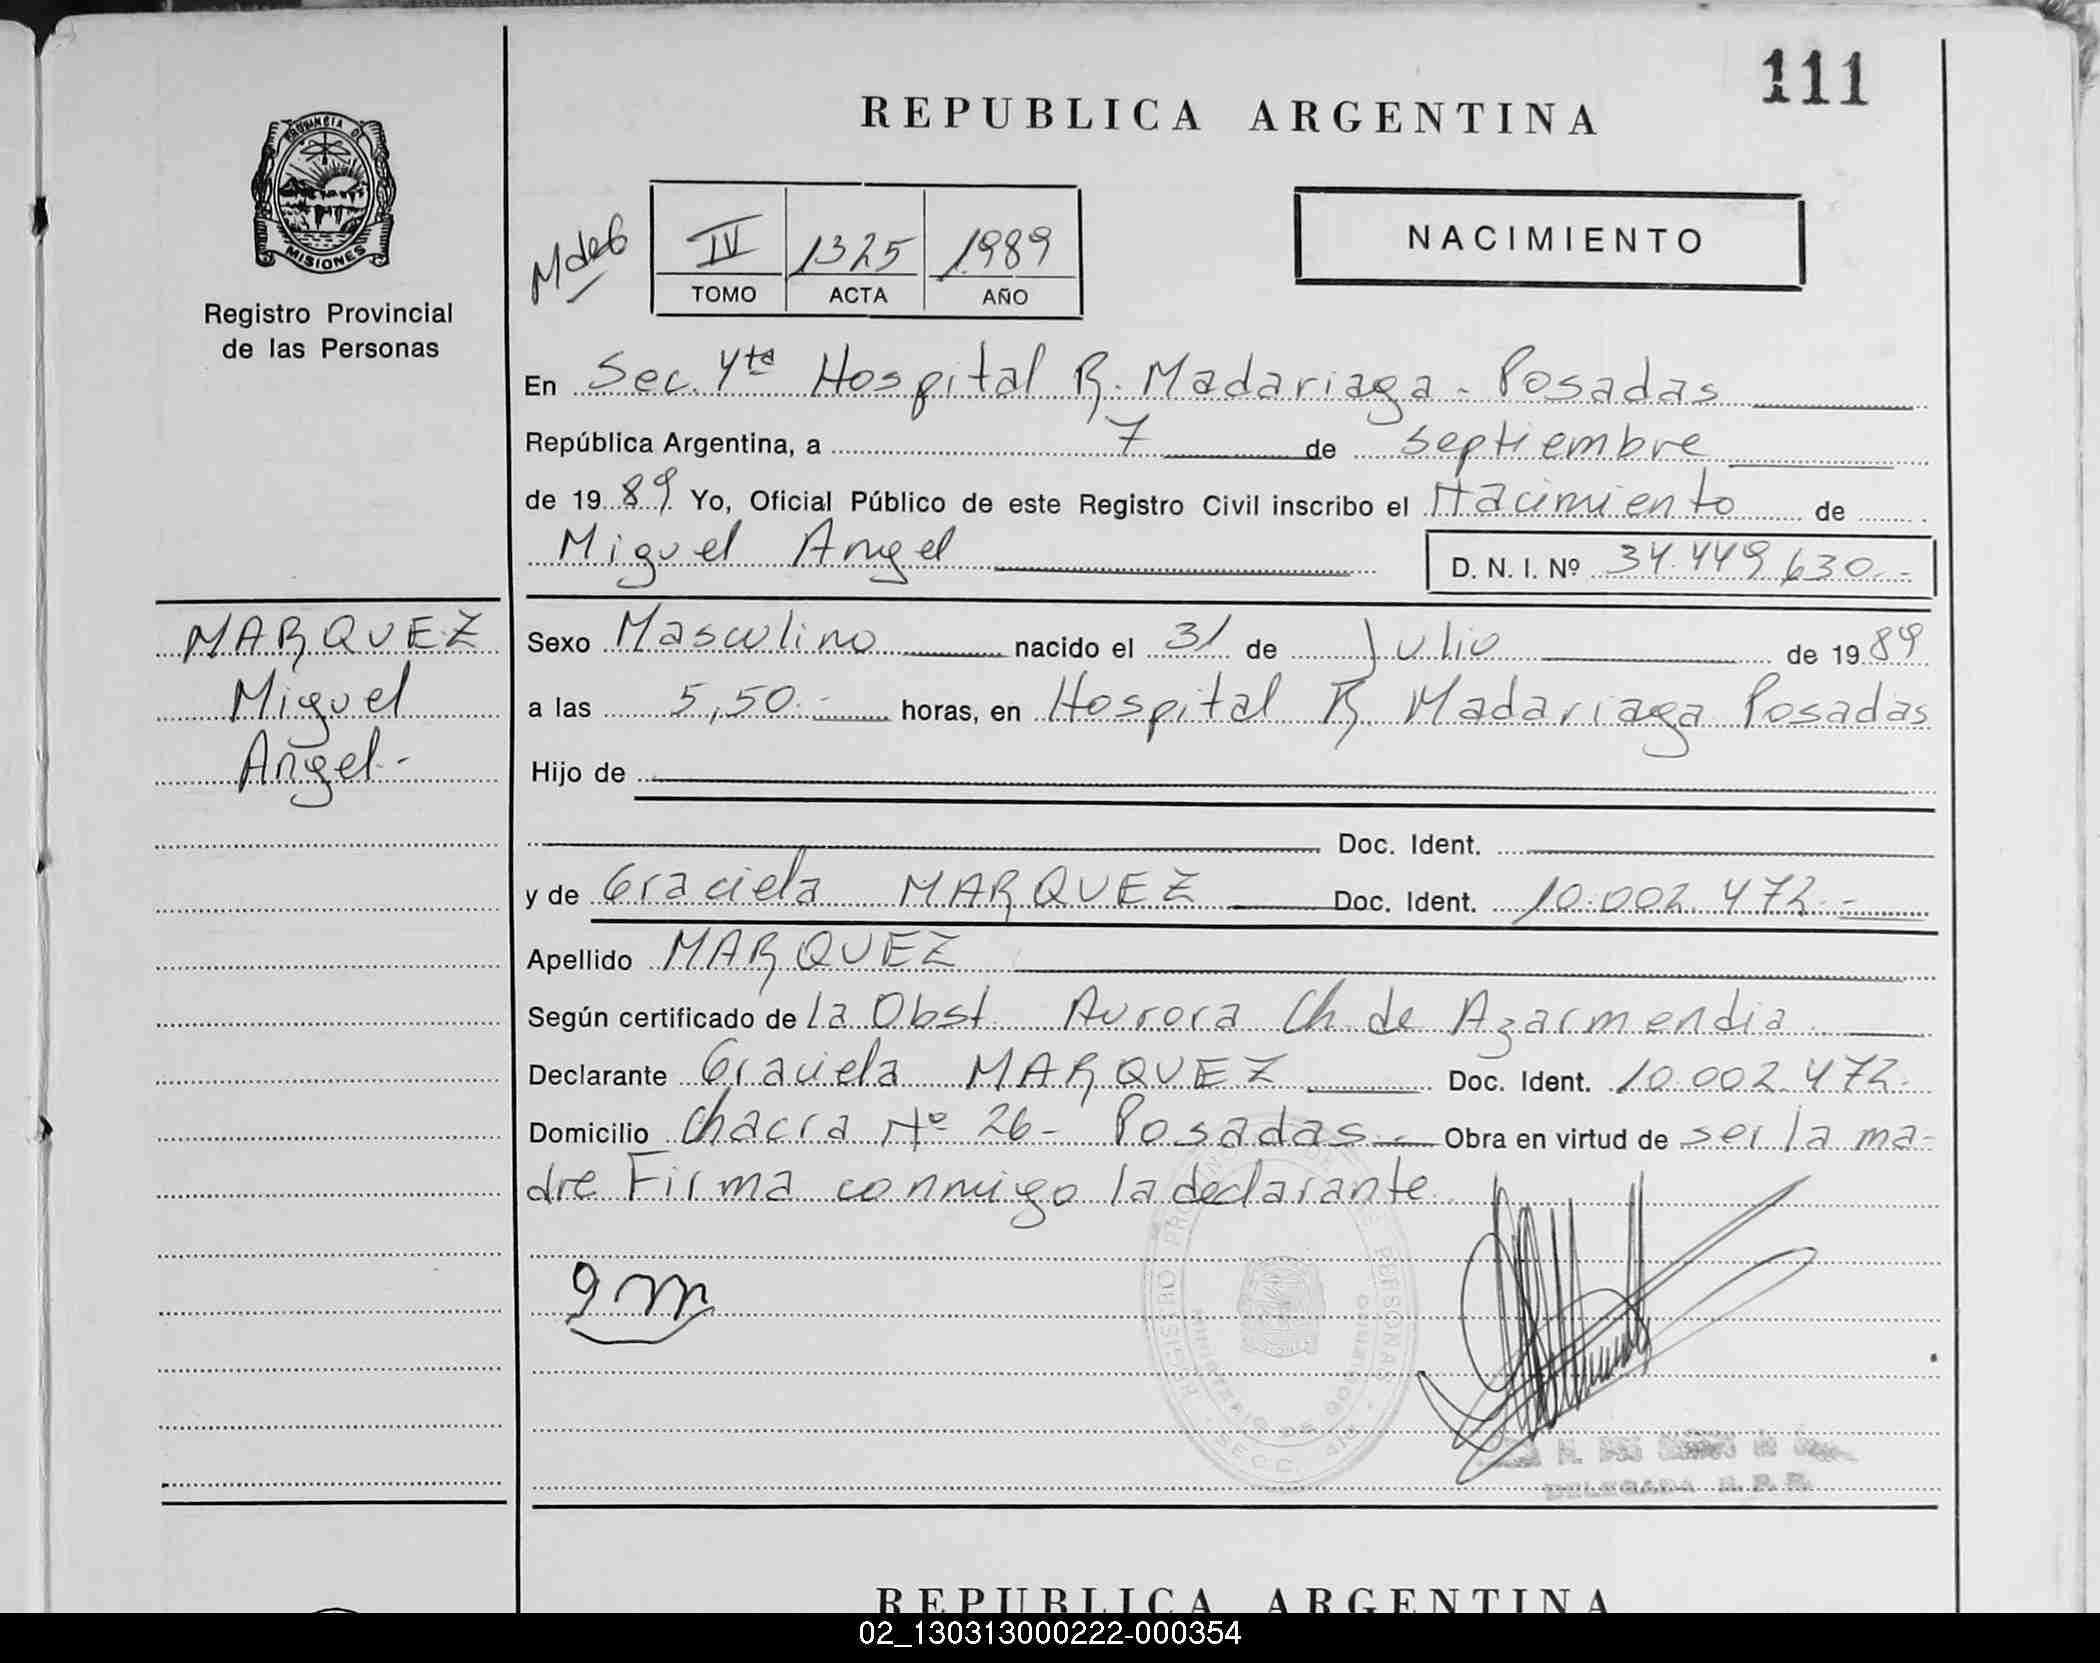 111
REPUBLICA ARGENTINA
PROVINCIA DE
MISIONES
Registro Provincial
de las Personas
IV 1325 1989
TOMO ACTA AÑO
NACIMIENTO
En Sec. 4ta Hospital R. Madariaga - Posadas
República Argentina, a 7 de septiembre
de 1989 Yo, Oficial Público de este Registro Civil inscribo el Nacimiento de
Miguel Angel D. N. I. Nº 34.449.630.-
MARQUEZ
Miguel
Angel.-
Sexo Masculino nacido el 31 de Julio de 1989
a las 5,50.- horas, en Hospital R. Madariaga Posadas
Hijo de
Doc. Ident.
y de Graciela MARQUEZ Doc. Ident. 10.002.472.-
Apellido MARQUEZ
Según certificado de la Obst. Aurora Ch. de Azarmendia
Declarante Graciela MARQUEZ Doc. Ident. 10.002.472.
Domicilio Chacra Nº 26- Posadas.- Obra en virtud de ser la ma-
dre Firma conmigo la declarante.
gm
REGISTRO PROVINCIAL DE LAS PERSONAS
MINISTERIO DE GOBIERNO
DELEGADA R. P. P.
REPUBLICA ARGENTINA
02_130313000222-000354